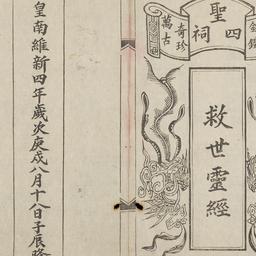 四聖祠
奇珍
萬古
救世靈經
皇南維新四年歲次庚戌八月十八日子辰